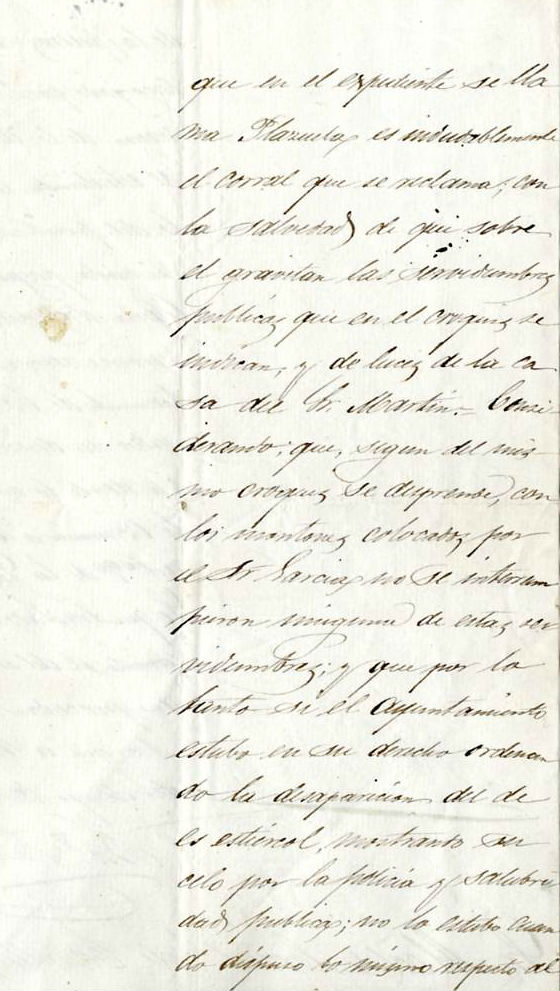 que en el expediente se lla
ma Plazuela, es indudablemente
el corral que se reclama; con
la salvedad de que sobre
el gravitan las servidumbres
publicas que en el croquis se
indican, y de luces de la ca
sa del Sr. Martin.= Consi
derando; que, segun del mis
mo croquis se desprende, con
los montones colocados por
el Sr. Garcia, no se interrum
pieron ninguna de estas ser
vidumbres; y que por lo
tanto si el Ayuntamiento
estubo en su derecho ordenan
do la desaparicion del de
es estiercol, mostrando su
celo por la policia y salubri
dad publica; no lo estubo cuan
do dispuso lo mismo respecto al